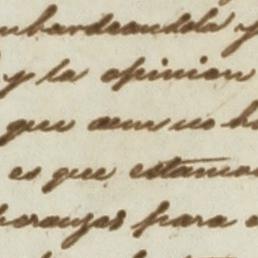 mbardeandola y
y la opinion
que aun no ha
es que estamos
peranzas para